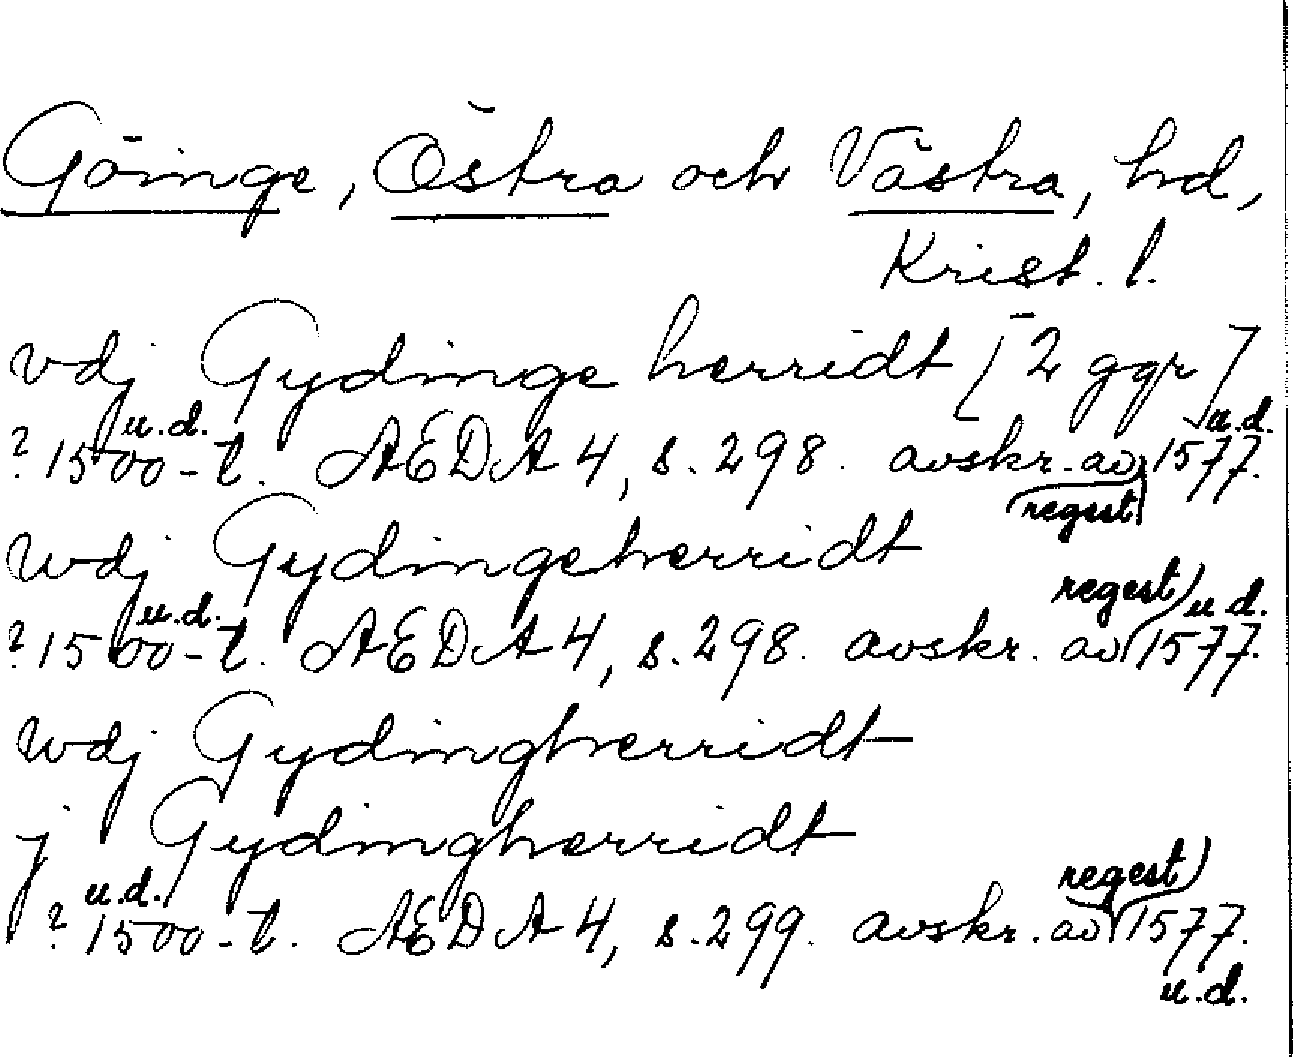 Göinge, Östra och Västra, hd,
Krist. l.
vdj Gydinge herridt [2 ggr]
u.d. u.d.
? 1500-t. AEDA 4, s. 298. avskr. av 1577.
regest
wdj Gydingeherridt
regest u.d.
u.d.
? 1500-t. AEDA 4, s. 298. avskr. av 1577.
wdj Gydingherridt
j Gydingherridt
u.d. regest
? 1500-t. AEDA 4, s. 299. avskr. av 1577.
u.d.